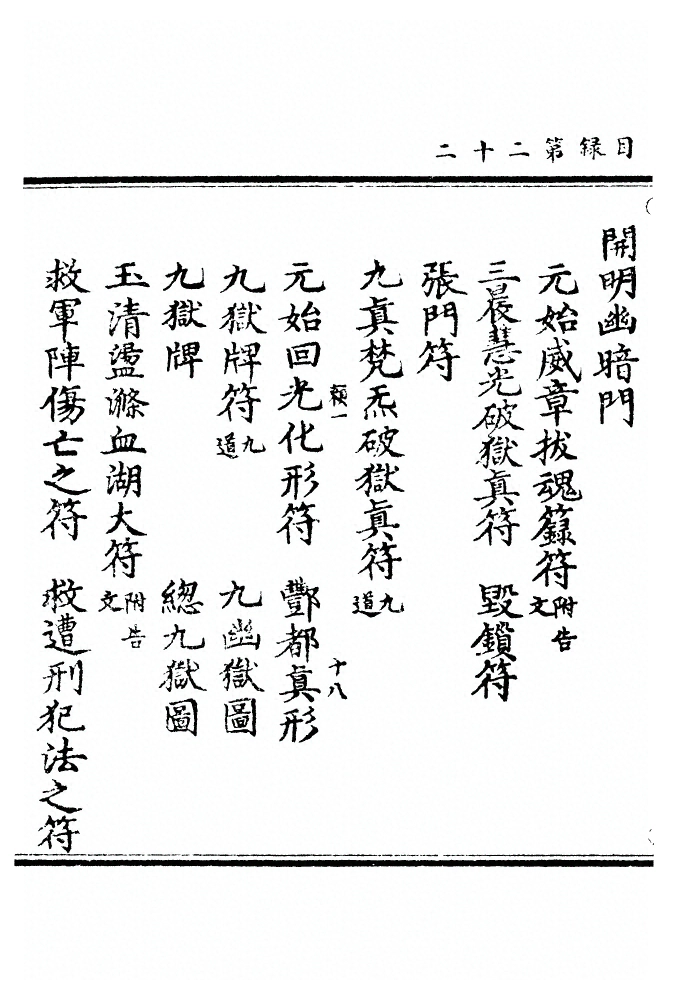 目録第二十二
開明幽暗門
元始威章拔魂籙符附告文
三晨慧光破獄眞符　毀鎖符
張門符
九眞梵炁破獄眞符九道
元始回光化形符　酆都眞形
九獄牌符九道　九幽獄圖
九獄牌　總九獄圖
玉清盪滌血湖大符附告文
救軍陣傷亡之符　救遭刑犯法之符
十八